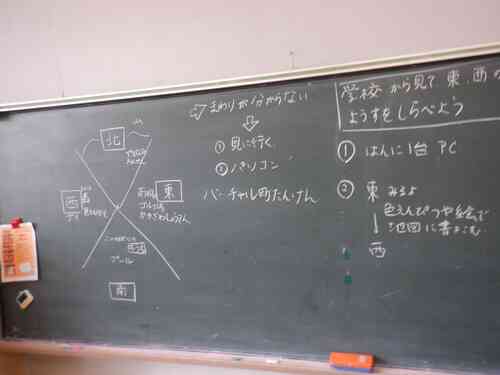 北
山
西
東
南
プール
まわりが分からない
① 見に行く
② パソコン
バーチャル町たんけん
学校から見て 東、西の
ようすをしらべよう
① はんに1台 PC
② 東 みるよ
色えんぴつや絵で
地図に書きこむ
西